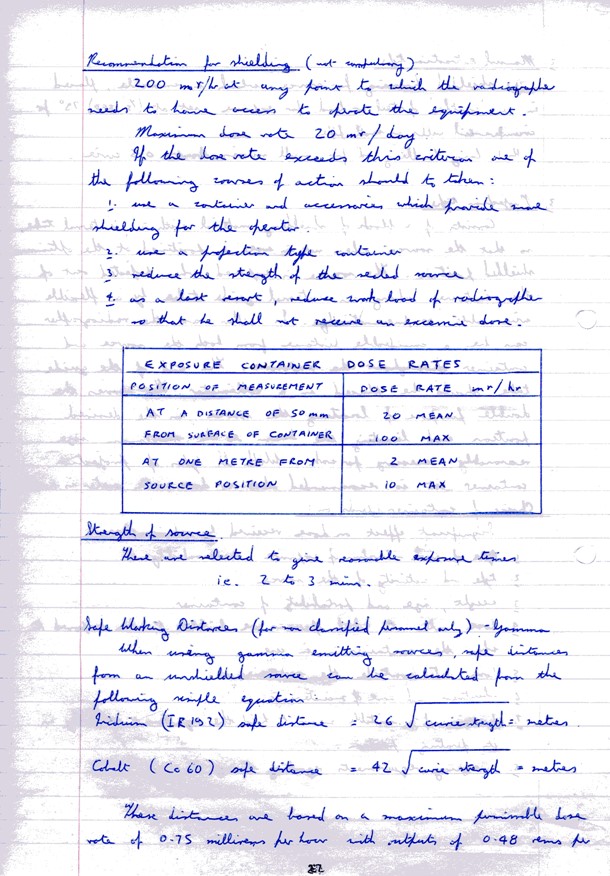 Recommendation for shielding (not compulsory)
200 mr/hr at any point to which the radiographer
needs to have access to operate the equipment.
Maximum dose rate 20 mr/day
If the dose rate exceeds this criterion one of
the following courses of action should to taken:
1. use a container and accessories which provide more
shielding for the operator.
2. use a projection type container
3. reduce the strength of the sealed source
4. as a last resort, reduce work load of radiographer
so that he shall not receive an excessive dose.
EXPOSURE CONTAINER DOSE RATES
POSITION OF MEASUREMENT DOSE RATE mr/hr
AT A DISTANCE OF 50mm 20 MEAN
FROM SURFACE OF CONTAINER 100 MAX
AT ONE METRE FROM 2 MEAN
SOURCE POSITION 10 MAX
Strength of source.
These are selected to give reasonable exposure times
ie. 2 to 3 mins.
Safe Working Distances (for non classified personnel only) - Gamma
When using gamma emitting sources, safe distances
from an unshielded source can be calculated from the
following simple equation.
Iridium (IR 192) safe distance = 26 √curie strength = metres.
Cobalt (Co 60) safe distance = 42 √curie strength = metres
These distances are based on a maximum permissible dose
rate of 0.75 millirems per hour with outputs of 0.48 rems per